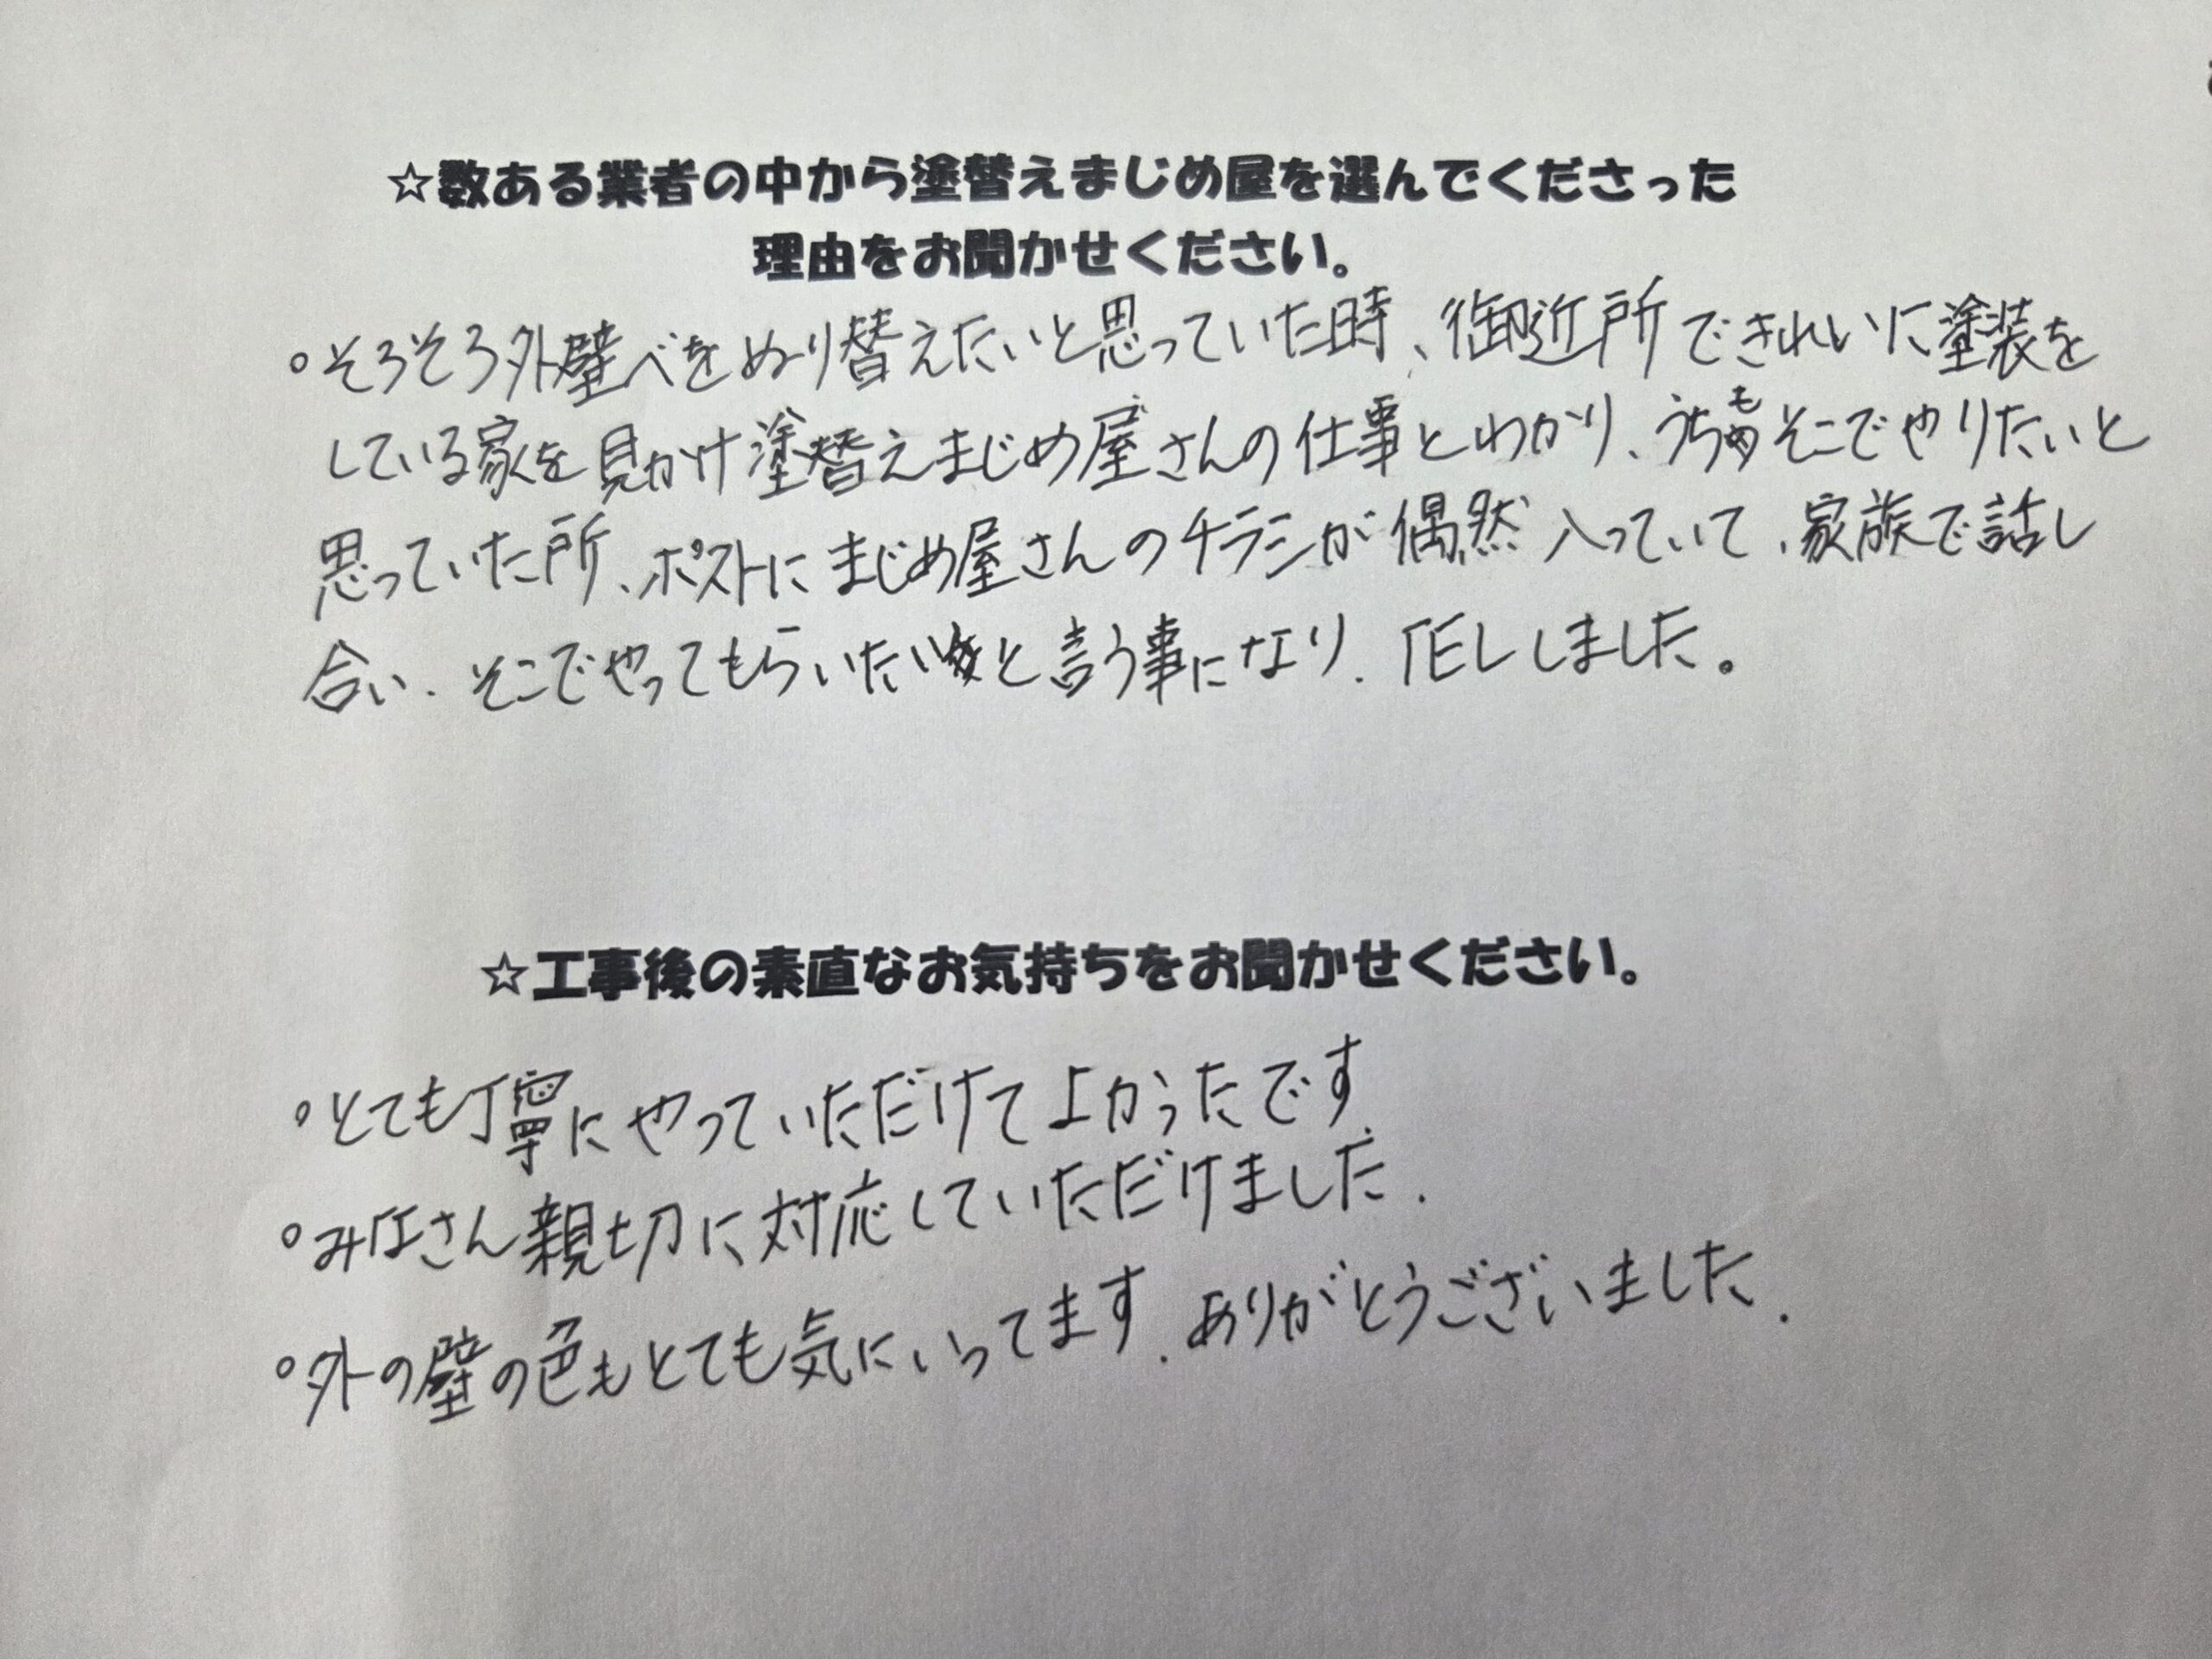 ☆数ある業者の中から塗替えまじめ屋を選んでくださった
理由をお聞かせください。
。そろそろ外壁べをぬり替えたいと思っていた時、御近所できれいに塗装を
している家を見かけ塗替えまじめ屋さんの仕事とわかり、うちもそこでやりたいと
思っていた所、ポストにまじめ屋さんのチラシが偶然入っていて、家族で話し
合い、そこでやってもらいたいと言う事になり、TELしました。
☆工事後の素直なお気持ちをお聞かせください。
。とても丁寧にやっていただけてよかったです。
。みなさん親切に対応していただけました。
。外の壁の色もとても気にいってます。ありがとうございました。